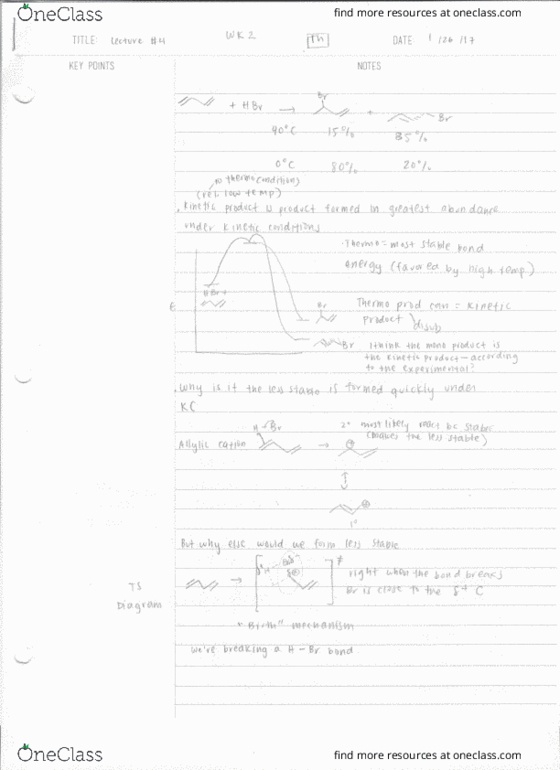 OneClass
find more resources at oneclass.com
TITLE: Lecture #4
WK 2
Th
DATE 1/26/17
KEY POINTS
NOTES
+ HBr → Br + Br
40°C 15% 85%
0°C 80% 20%
thermo conditions)
(rel. low temp)
. Kinetic product is product formed in greatest abundance
under kinetic conditions
· Thermo = most stable bond
energy (favored by high temp.)
E
HBr +
Br
Br
Thermo prod can = kinetic
product
I think the more product is
the kinetic product - according
to the experimental?
. Why is it the less stable is formed quickly under
KC
H-Br
Allylic cation
2° most likely react bc stable
(makes the less stable)
⊕
⊕
1°
But why else would we form less stable
TS
Diagram
δ+ H
≠
right when the bond breaks
Br is close to the δ+ C
mechanism
we're breaking a H-Br bond
OneClass
find more resources at oneclass.com